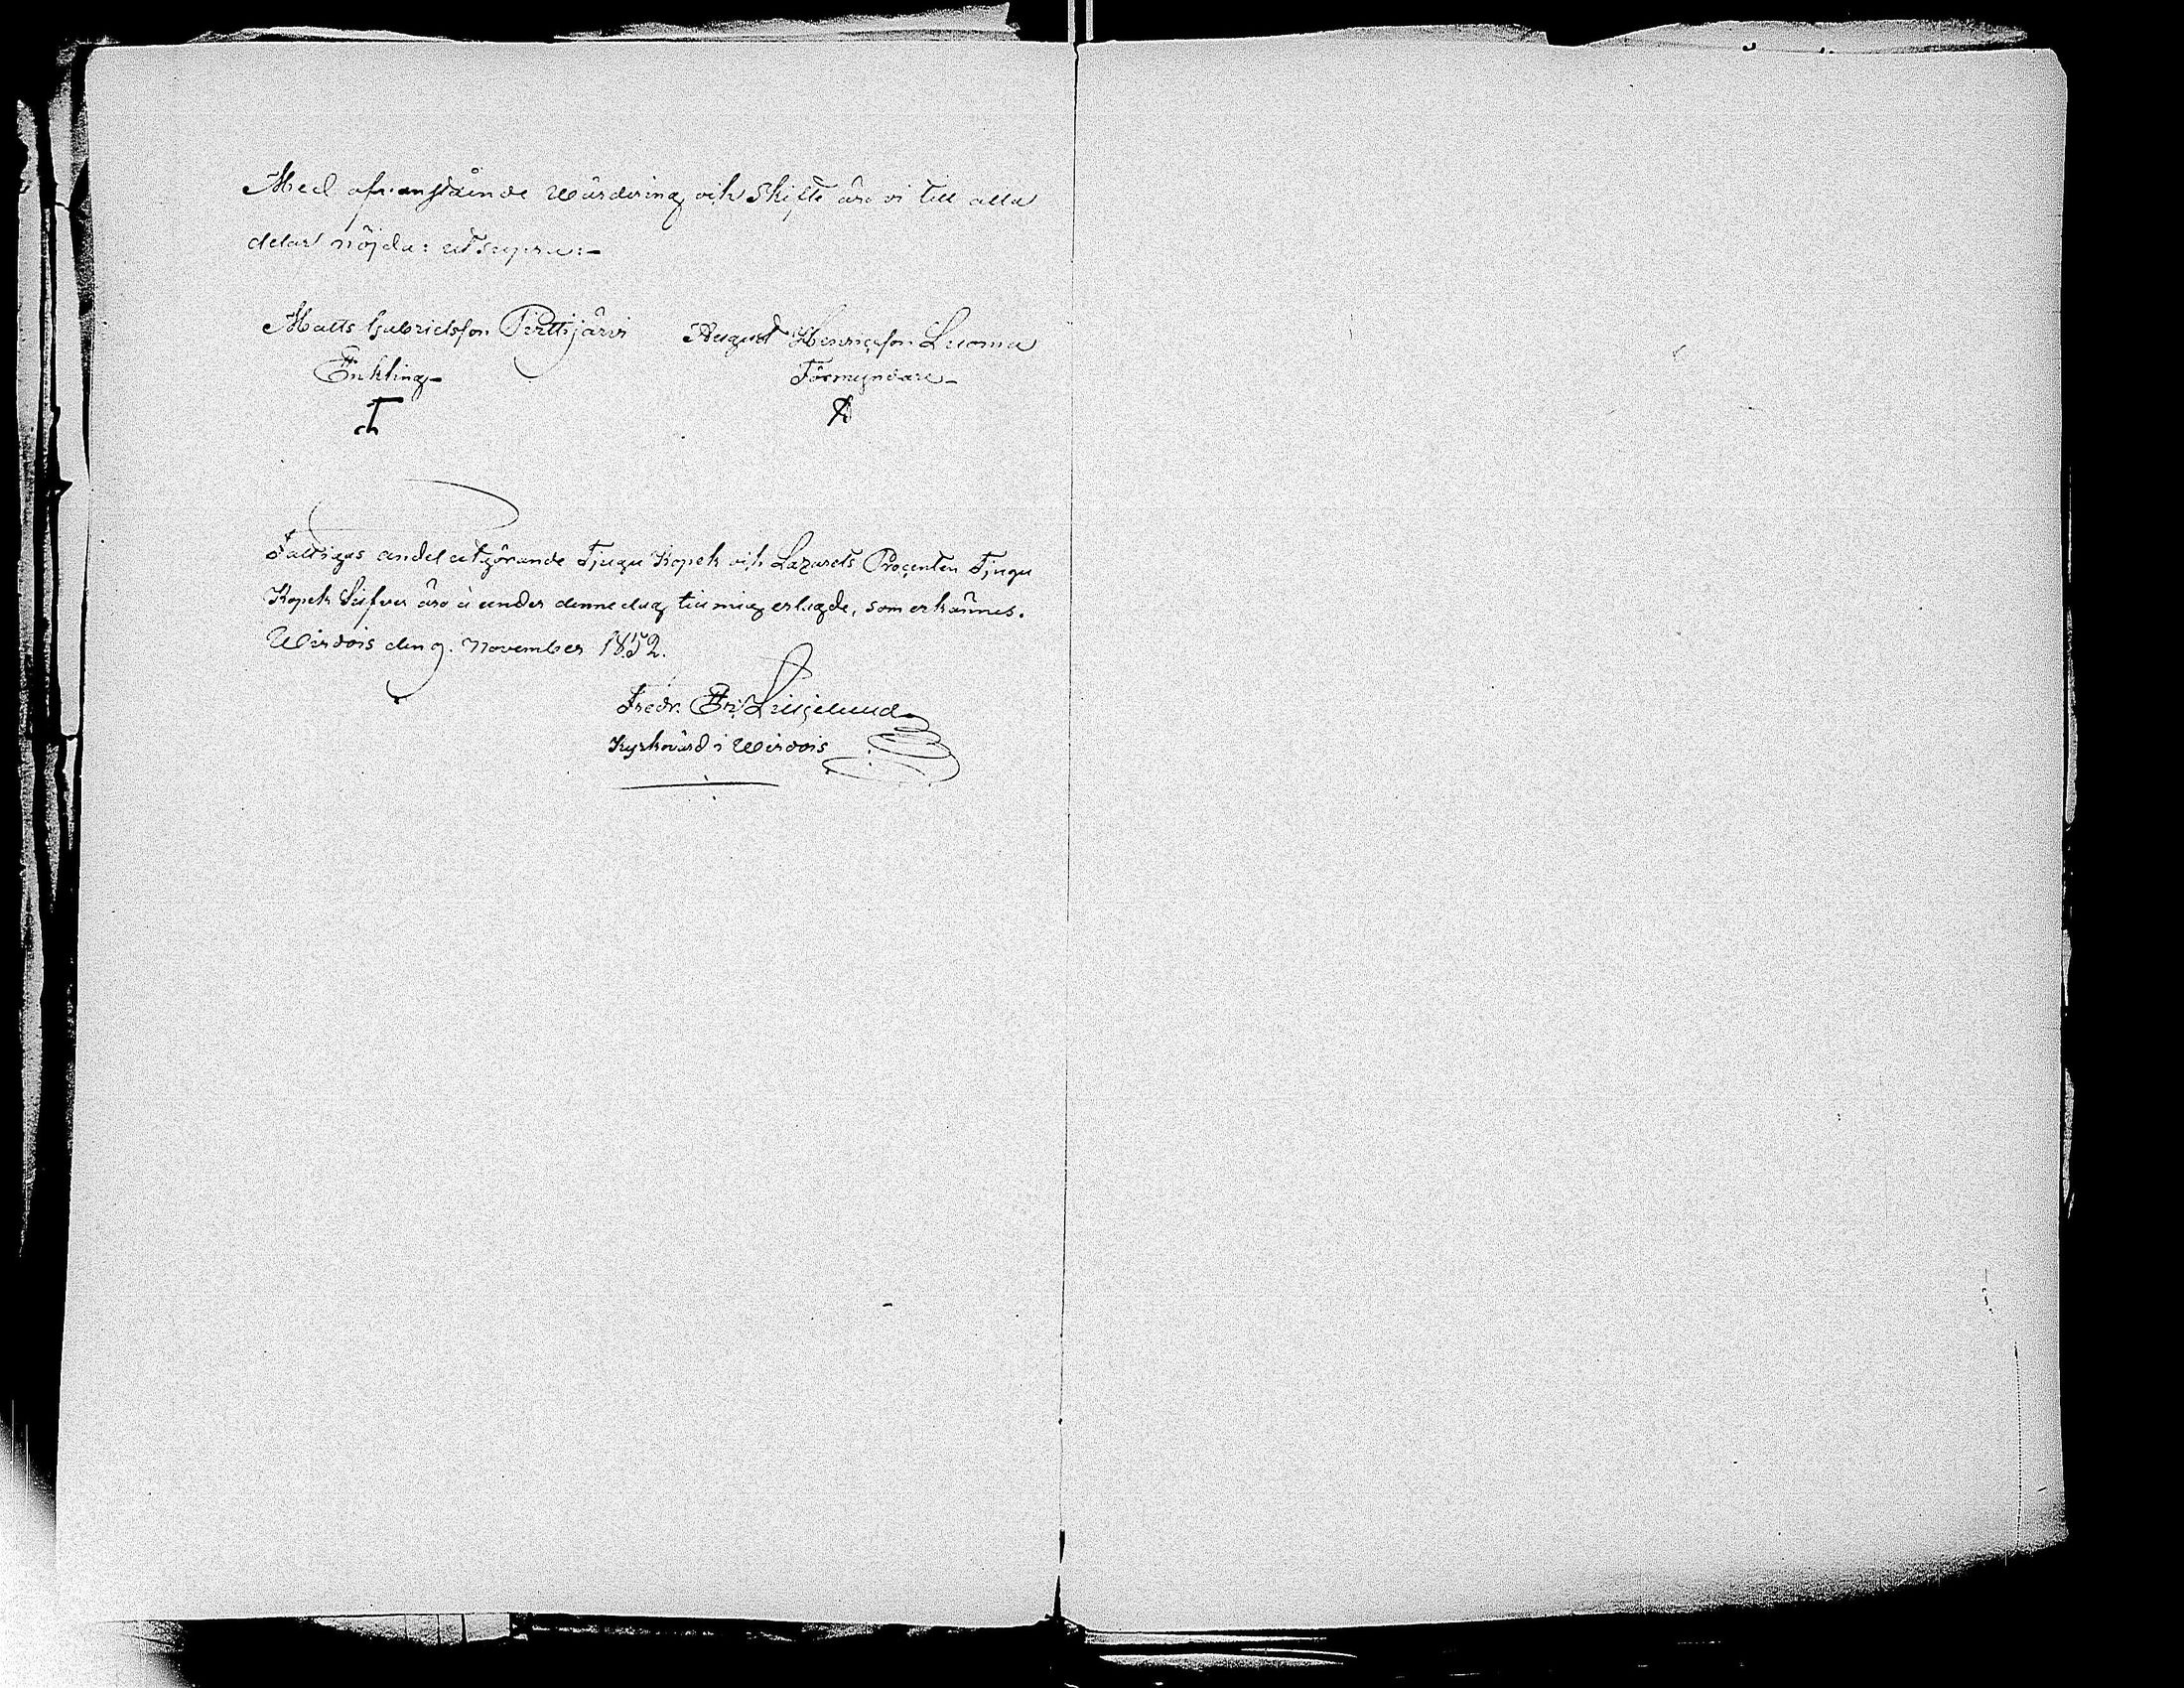 Med ofvanstående wärdering och Skifte äro vi till alla
delar nöjda: ut supra:-
Matts Gabrielsson Perttijärvi August Henricsson Luoma
Enkling- Förmyndare-
Fattigas andel utgörande Tjugu Kopek och Lazarets Procenten Tjugu
Kopek Silfver äro å under denne dag till mig erlagde, som erkännes.
Wirdois den 9. November 1852.
Fredr. Er. Liljelund
Kyrkovärd i Wirdois